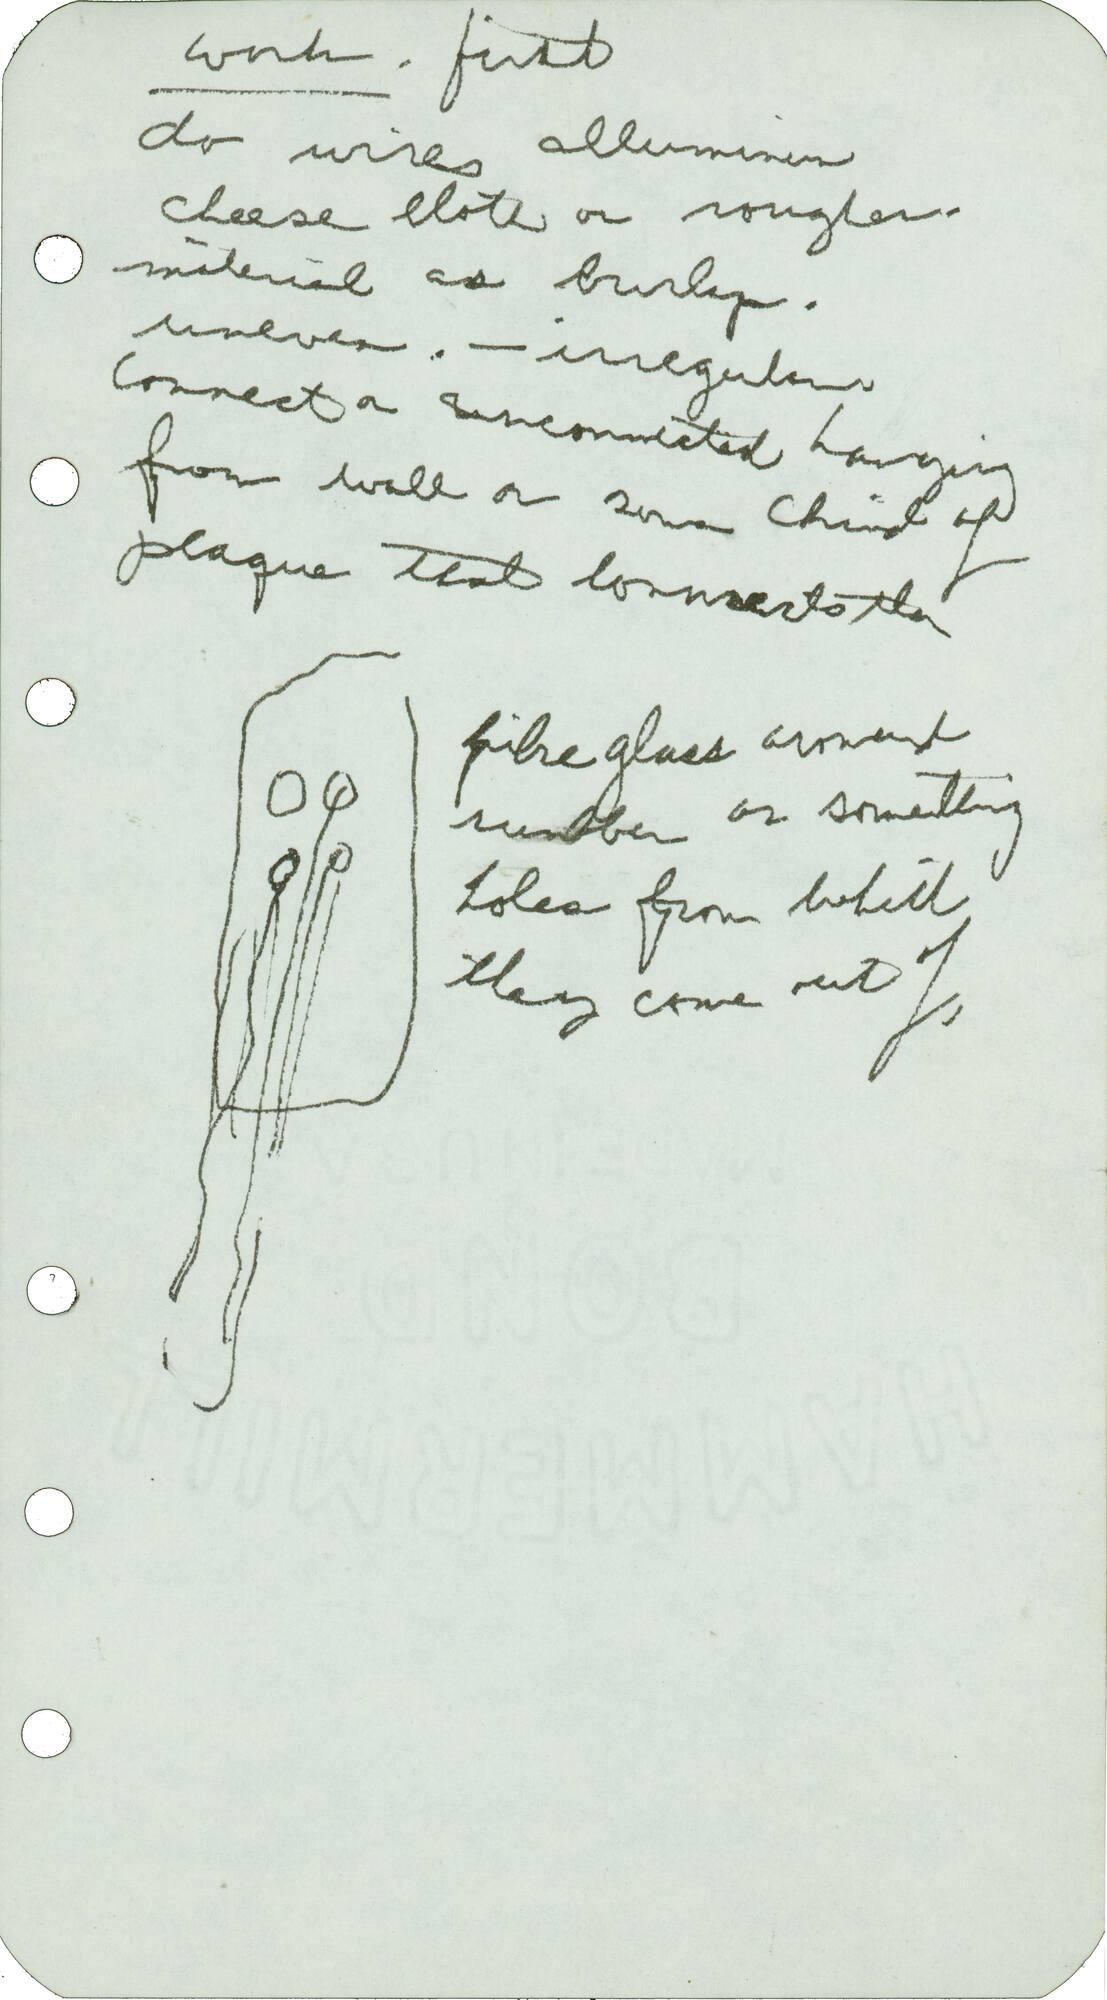 work. first
do wires alluminum
cheese cloth or rougher
material as burlap.
uneven. — irregular
connect or unconnected hanging
from wall or some chind of
plaque that connects the
fibre glass around
rubber or something
holes from which
they come out of.
MADE IN U.S.A.
BOND
HAMMERMILL